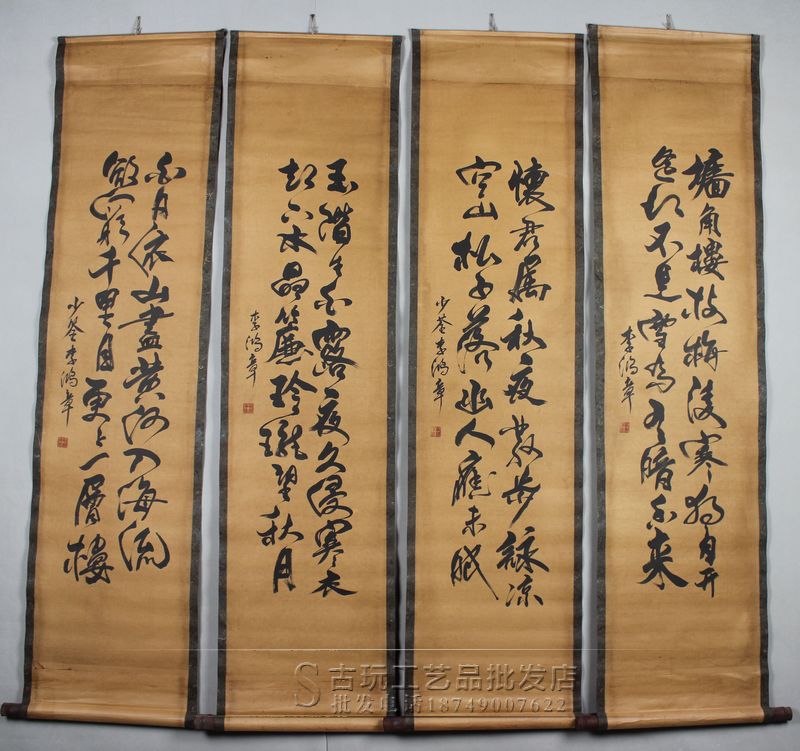 墻角樓枝梅凌寒獨自开
遥知不是雪為有暗香来
李鴻章
懷君属秋夜散步詠凉
空山松子落幽人應未眠
少荃李鴻章
玉階生白露夜久侵寒衣
却下水晶簾玲瓏望秋月
李鴻章
白日依山盡黄河入海流
欲窮千里目更上一層樓
少荃李鴻章
古玩工艺品批发店
批发电话18749007622